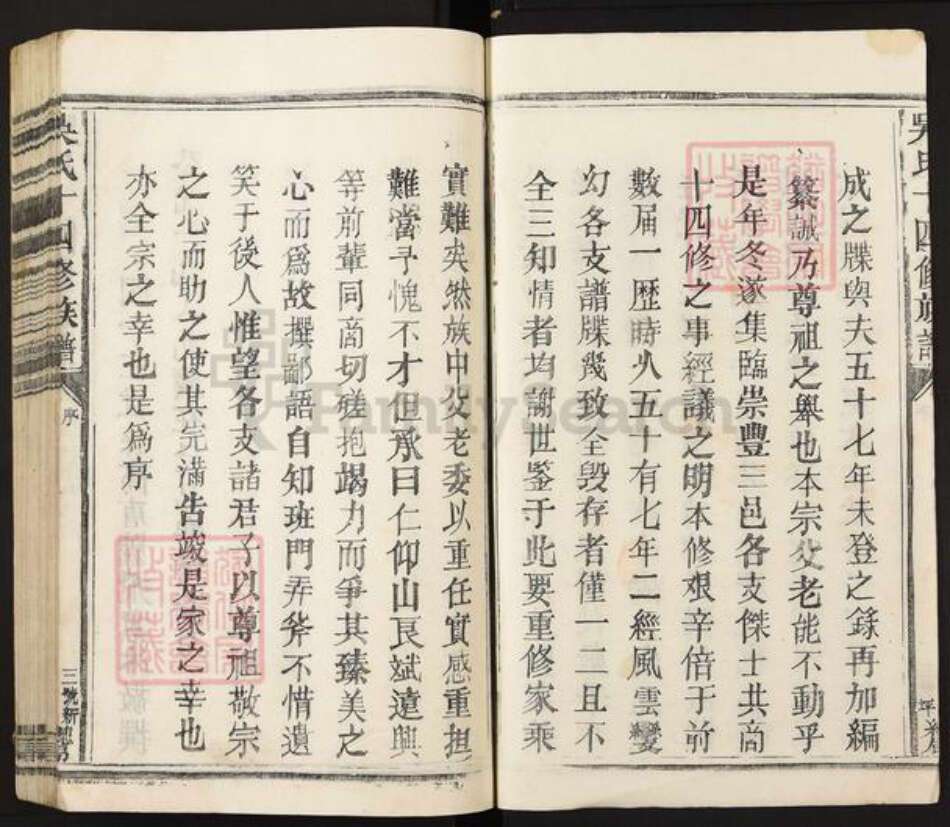 吳氏十四修族譜
成之牒與夫五十七年未登之錄再加編
纂誠乃尊祖之舉也本宗父老能不動乎
是年冬遂集臨崇豐三邑各支傑士共商
十四修之事經議之明本修艱辛倍于前
數届一歷時火五十有七年二經風雲變
幻各支譜牒幾致全毁存者僅一二且不
全三知情者均謝世鉴于此要重修家乘
實難矣然族中父老委以重任實感重担
難當予愧不才但承曰仁仰山艮斌遠興
等前輩同商切磋抱竭力而爭其臻美之
心而爲故撰鄙語自知班門弄斧不惜遺
笑于後人惟望各支諸君子以尊祖敬宗
之心而助之使其完滿告竣是家之幸也
亦全宗之幸也是爲序
吳氏十四修族譜
序
三號新
FamilySearch